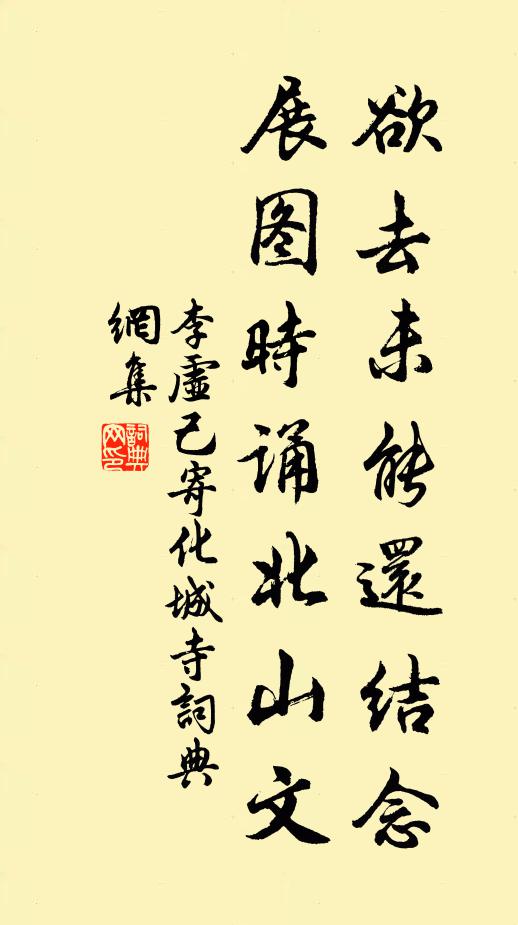 欲去未能還结念
展图時诵北山文
李虛己寄化城寺詞典
網集
詞典网印